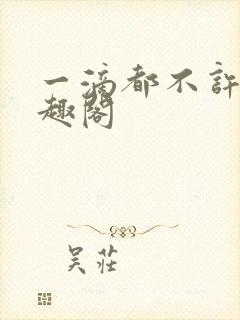 一滴都不許
趣閣
吴莊